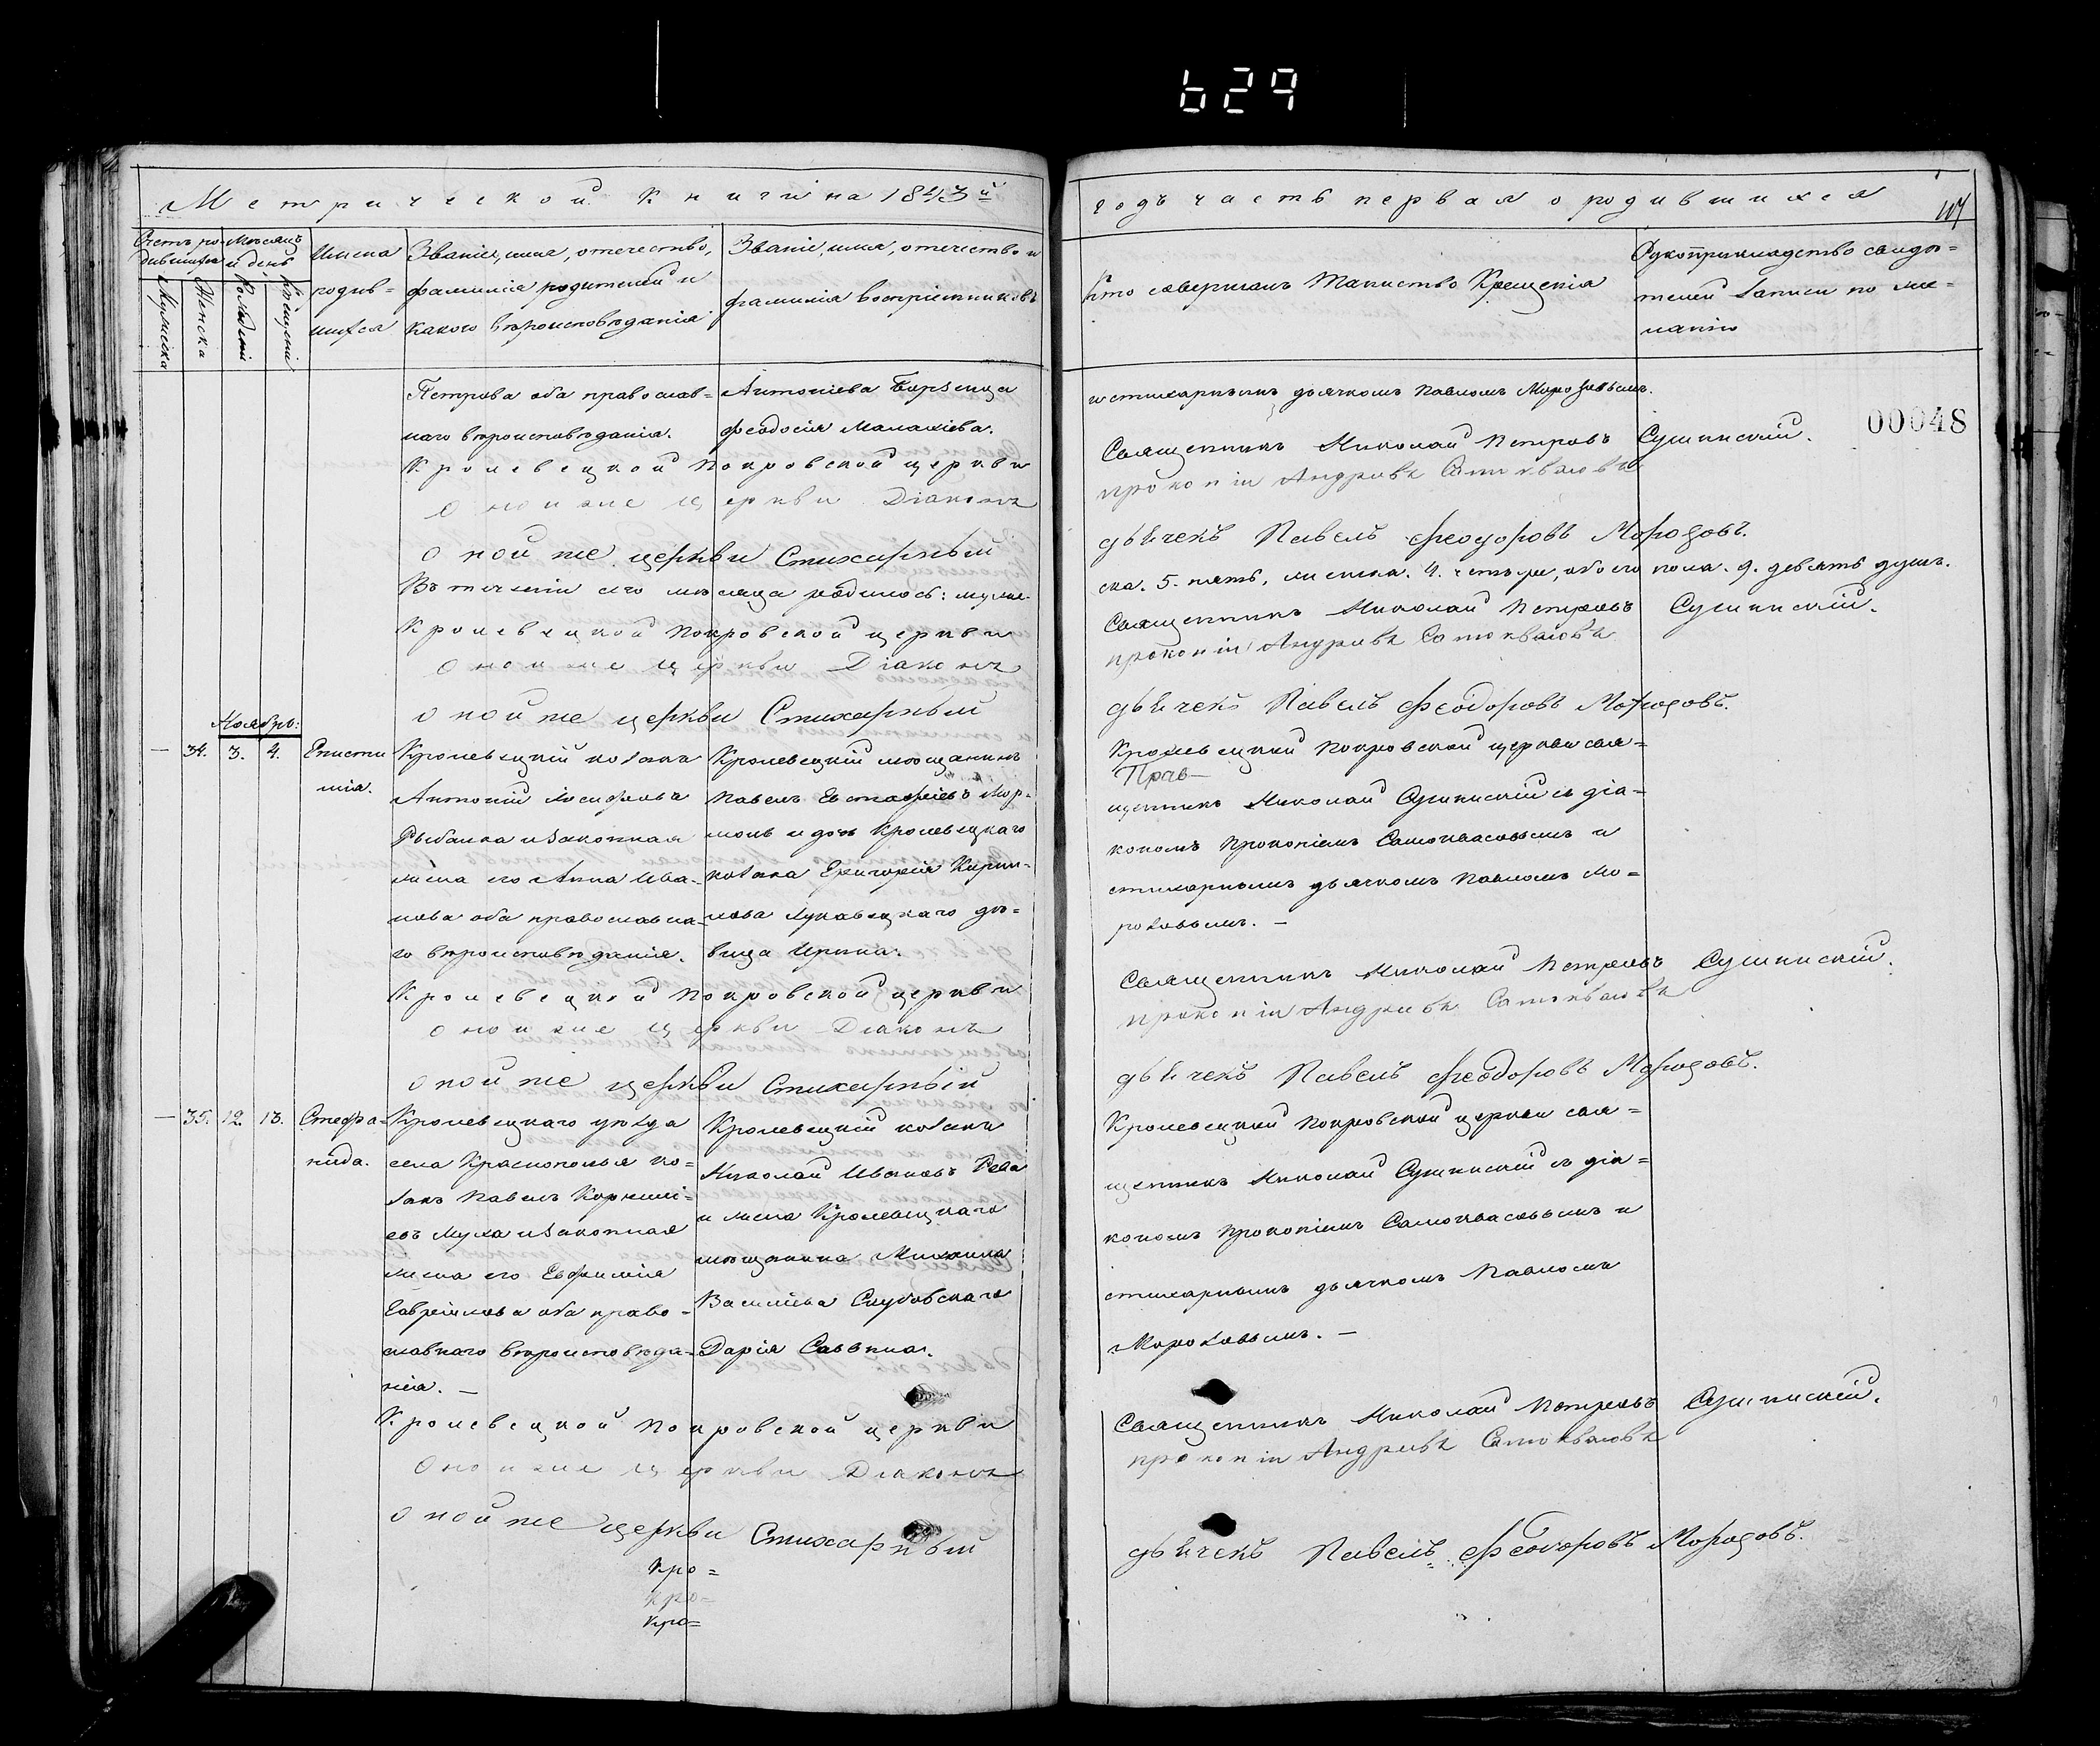 629
Метрической книги на 1843й
годъ часть первая о родившихся
Счетъ ро-
дившихся
Мужеска
Женска
Мѣсяцъ
и день
Рожденія
Крещенія
Имена
родив=
шихся
Званіе, имя, отечество,
фамилія родителей и
какого вѣроисповѣданія
Званіе, имя, отечество и
фамилія воспріемниковъ
Кто совершалъ Таинство Крещенія
Рукоприкладство свидѣ=
телей записи по же=
ланію
00048
Петрова оба православ=
наго вѣроисповѣданія.
Антоніева
Феодосія Малахіева.
и стихарнымъ дьячкомъ Павломъ Морозовымъ.
Кролевецкой Покровской церкви
Священникъ Николай Петровъ Сушинскій.
оной же церкви Діаконъ
Прокопій Андріевъ Самоквасовъ
оной же церкви Стихарный
дьячекъ Павелъ Феодоровъ Морозовъ.
Въ теченіи сего мѣсяца родилось: муже-
ска. 5. пять, женска. 4. четыре, обоего пола. 9. девять душъ.
Кролевецкой Покровской церкви
Священникъ Николай Петровъ Сушинскій.
оной же церкви Діаконъ
Прокопій Андріевъ Самоквасовъ
оной же церкви Стихарный
дьячекъ Павелъ Феодоровъ Морозовъ.
Ноябрь:
— 34. 3. 4.
Еписти
мія.
Кролевецкій козакъ
Антоній Іосифовъ
Рыбалка и законная
жена его Анна Ива-
нова оба православна-
го вѣроисповѣданія.
Кролевецкій мѣщанинъ
Павелъ Евстафіевъ Мор-
и дочь Кролевецкаго
козака Григорія Кирил-
лова дѣ=
вица Ирина.
Кролевецкой Покровской церкви свя=
щенникъ Николай Сушинскій съ діа=
кономъ Прокопіемъ Самоквасовымъ и
стихарнымъ дьячкомъ Павломъ Мо=
розовымъ. —
Кролевецкой Покровской церкви
Священникъ Николай Петровъ Сушинскій.
оной же церкви Діаконъ
Прокопій Андріевъ Самоквасовъ
оной же церкви Стихарный
дьячекъ Павелъ Феодоровъ Морозовъ.
— 35. 12. 13.
Стефа-
нида.
Кролевецкаго уѣзда
села Краснополья ко=
закъ Павелъ Корнилі=
евъ Муха и законная
жена его Евфимія
Гавріилова оба право-
славнаго вѣроисповѣда-
нія. —
Кролевецкій козакъ
Николай Ивановъ Рева
и жена Кролевецкаго
мѣщанина Михаила
Василіева
Дарія Саввина.
Кролевецкой Покровской церкви свя=
щенникъ Николай Сушинскій съ діа=
кономъ Прокопіемъ Самоквасовымъ и
стихарнымъ дьячкомъ Павломъ
Морозовымъ. —
Кролевецкой Покровской церкви
Священникъ Николай Петровъ Сушинскій.
оной же церкви Діаконъ
Прокопій Андріевъ Самоквасовъ
оной же церкви Стихарный
дьячекъ Павелъ Феодоровъ Морозовъ.
Кро=
кро=
Кро=